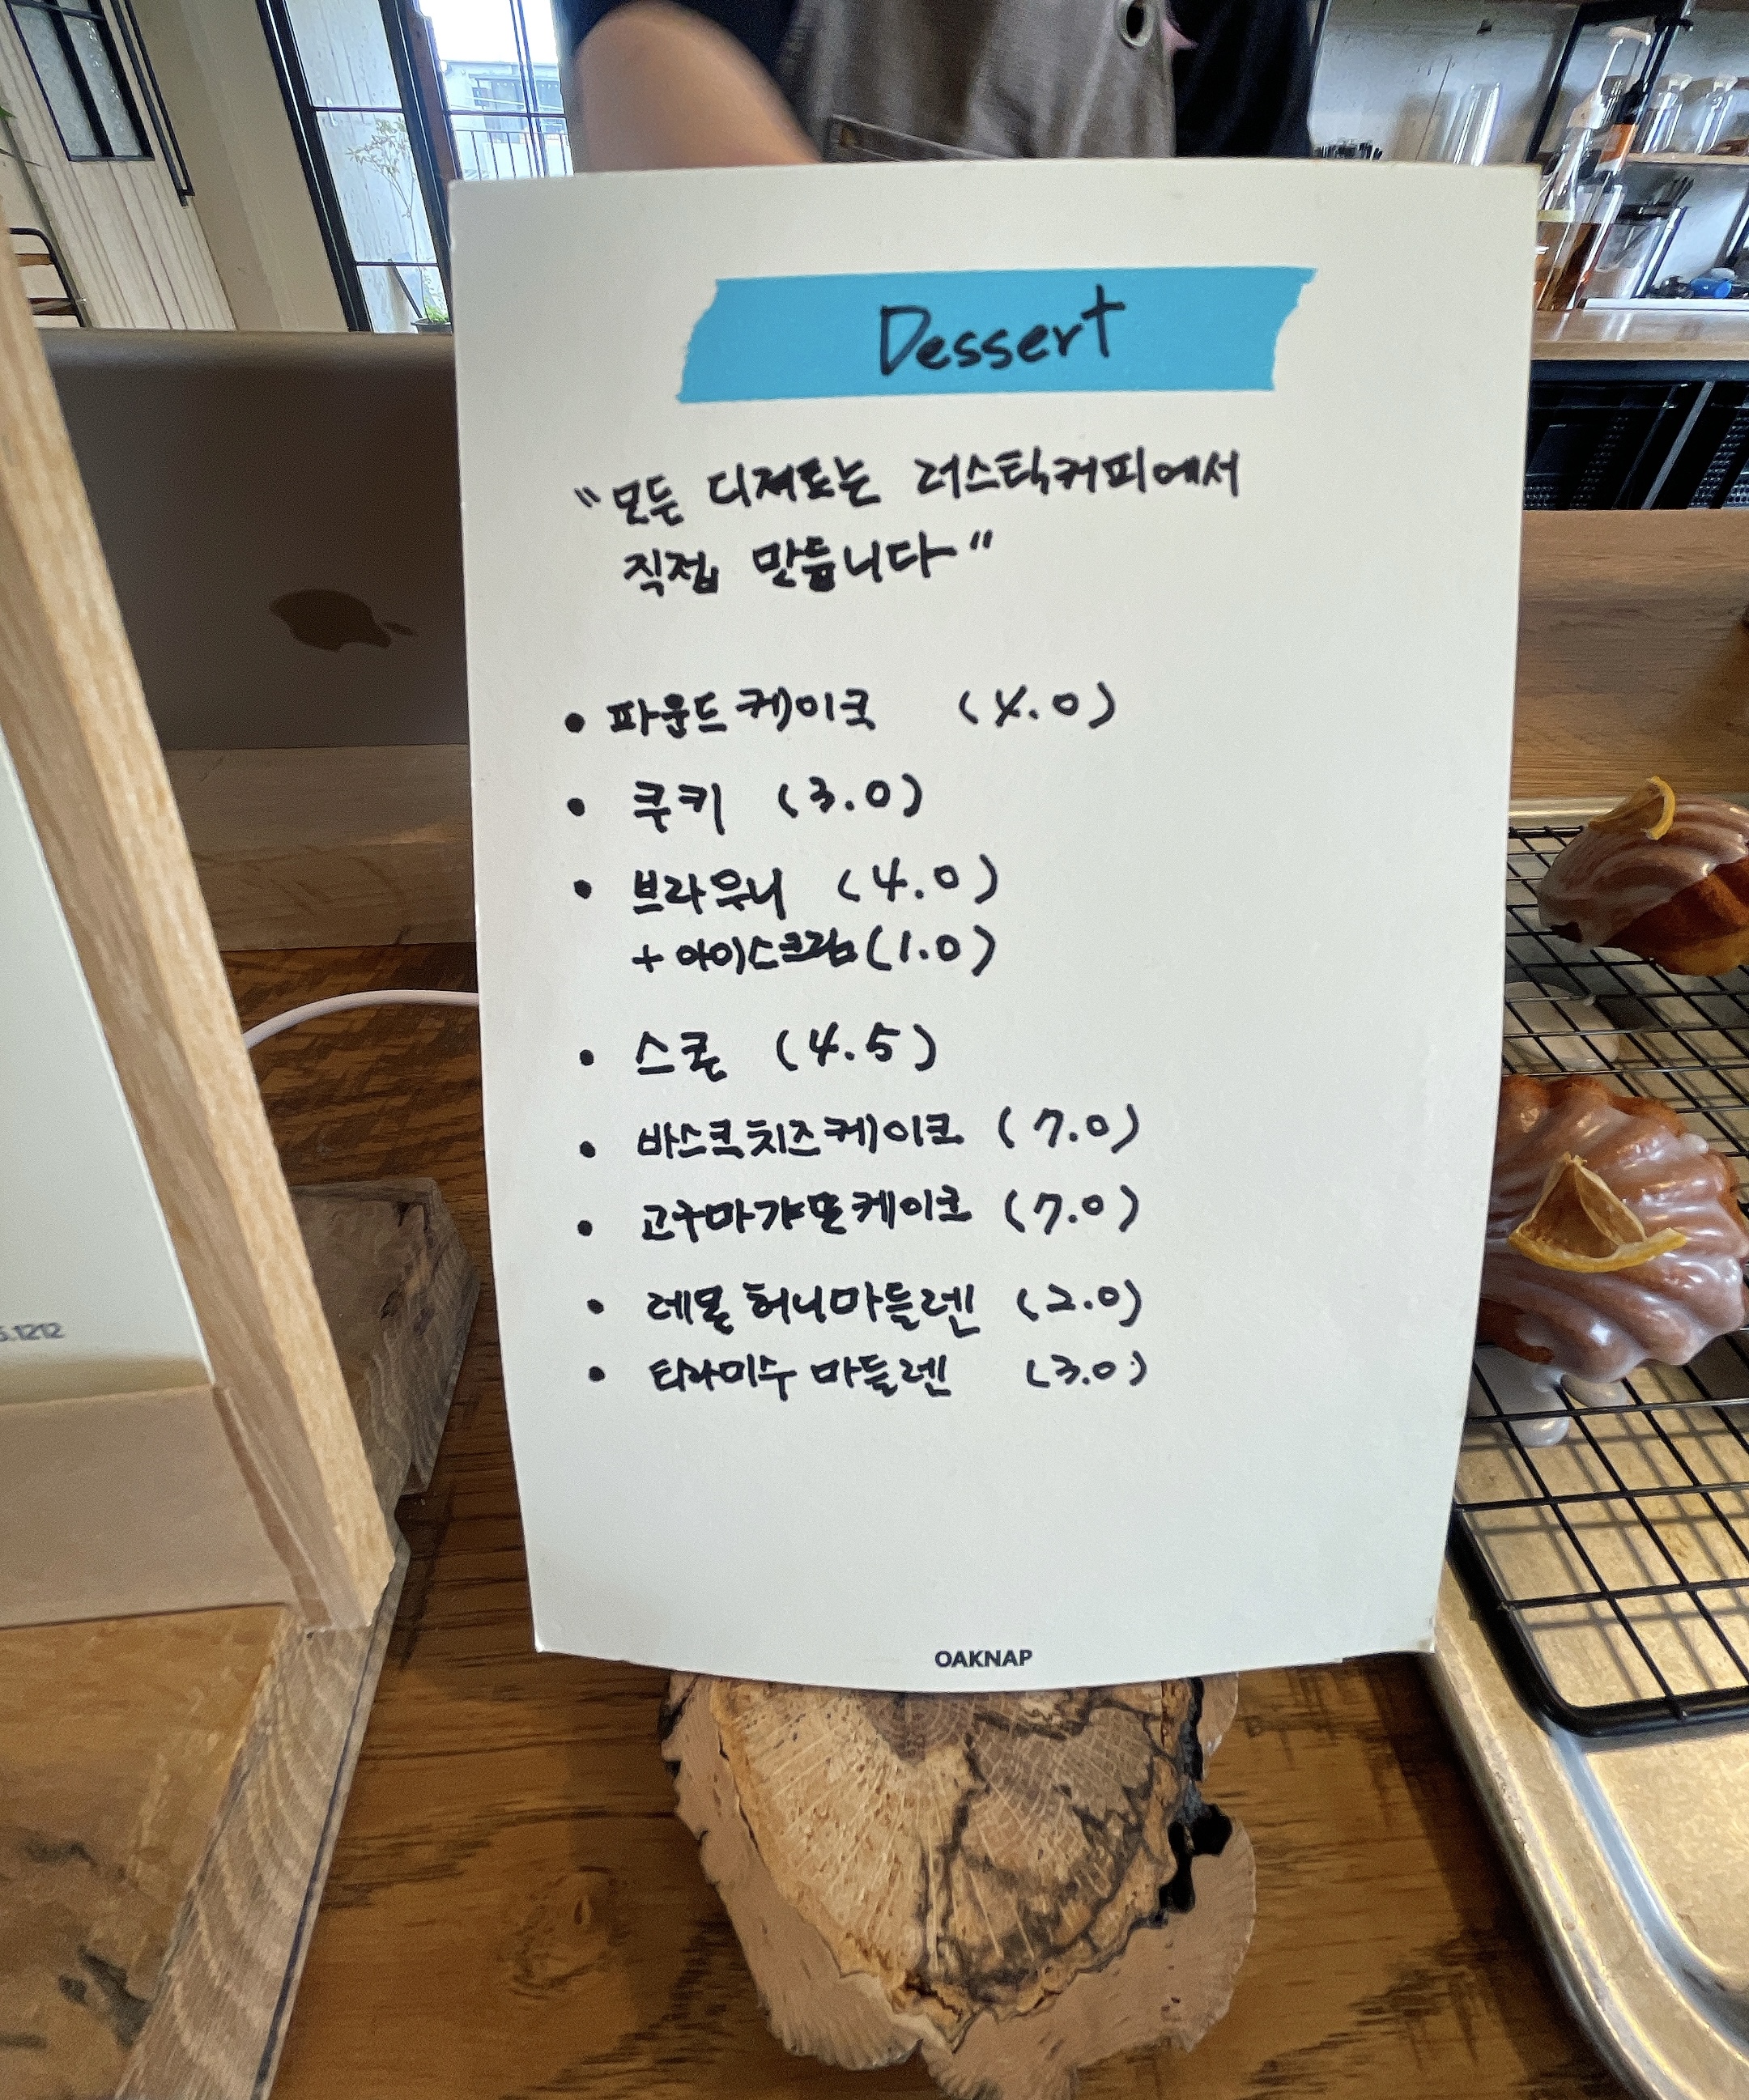 Dessert
"모든 디져트는 러스틱커피에서
직접 만듭니다"
• 파운드케이크 (4.0)
• 쿠키 (3.0)
• 브라우니 (4.0)
+ 아이스크림 (1.0)
• 스콘 (4.5)
• 바스크치즈케이크 (7.0)
• 고구마캬라멜케이크 (7.0)
• 레몬허니마들렌 (2.0)
• 티라미수 마들렌 (3.0)
OAKNAP